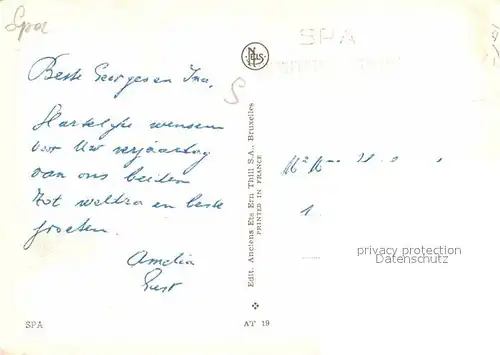 Spa
Beste Georges en Ina,
Hartelijke wensen
voor Uw verjaardag
van ons beiden
Tot weldra en beste
groeten.
Amelia
SPA
AT 19
NELS
Edit. Anciens Ets Ern Thill S.A., Bruxelles
PRINTED IN FRANCE
SPA
S
privacy protection
Datenschutz